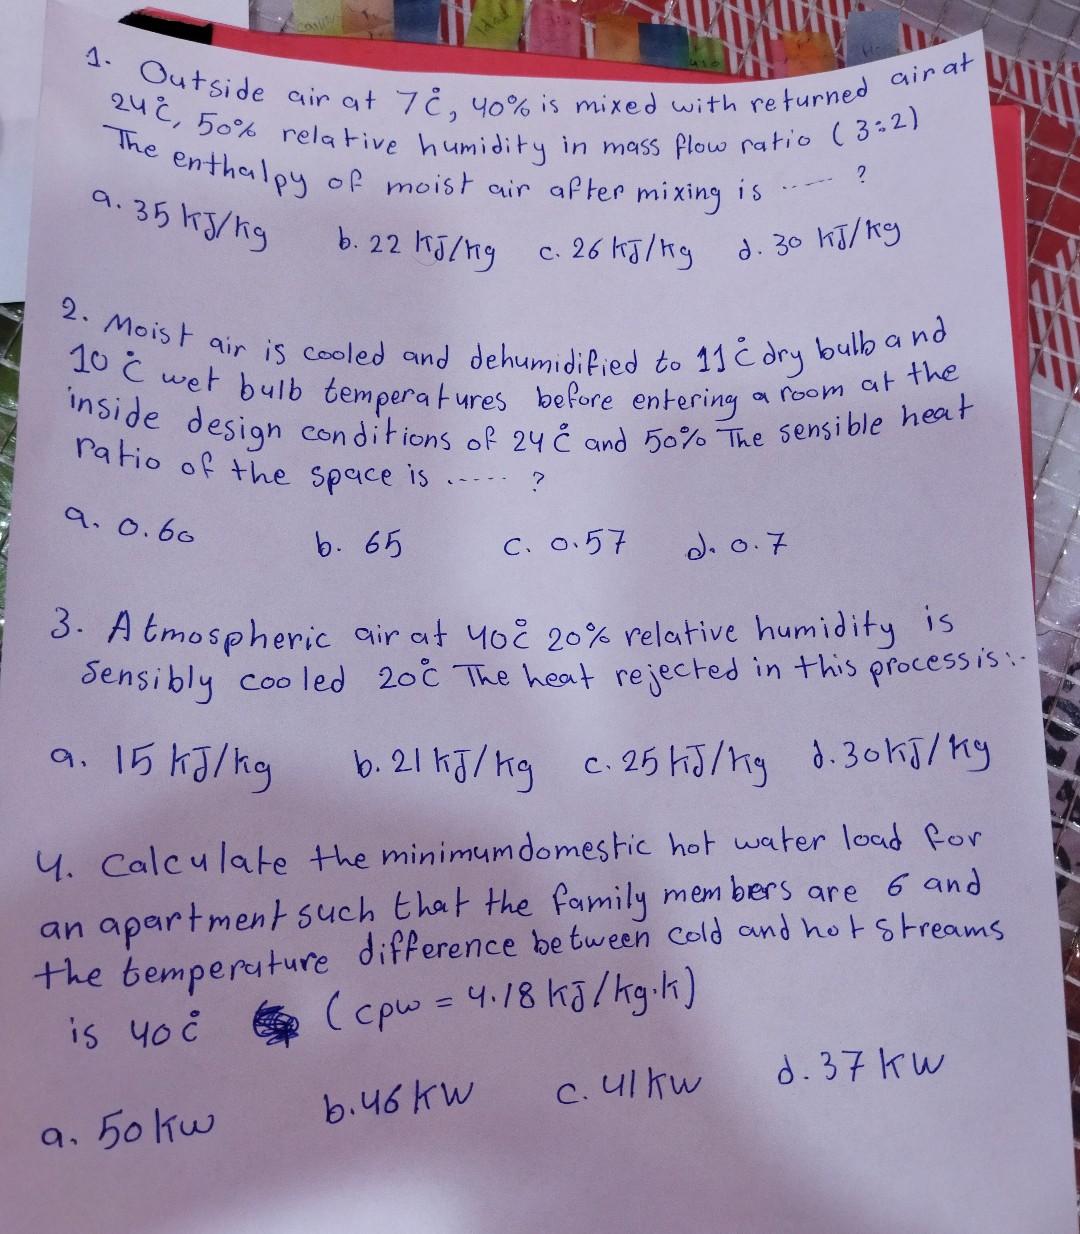 1. Outside air at 7°C, 40% is mixed with returned air at
24°C, 50% relative humidity in mass flow ratio (3:2)
The enthalpy of moist air after mixing is ...... ?
a. 35 kJ/kg b. 22 kJ/kg c. 26 kJ/kg d. 30 kJ/kg
2. Moist air is cooled and dehumidified to 11°C dry bulb and
10°C wet bulb temperatures before entering a room at the
inside design conditions of 24°C and 50% The sensible heat
ratio of the space is ...... ?
a. 0.60 b. 65 c. 0.57 d. 0.7
3. Atmospheric air at 40°C 20% relative humidity is
sensibly cooled 20°C The heat rejected in this process is:..
a. 15 kJ/kg b. 21 kJ/kg c. 25 kJ/kg d. 30 kJ/kg
4. Calculate the minimum domestic hot water load for
an apartment such that the family members are 6 and
the temperature difference between cold and hot streams
is 40°C (cpw = 4.18 kJ/kg.k)
a. 50 kw b. 46 kw c. 41 kw d. 37 kw